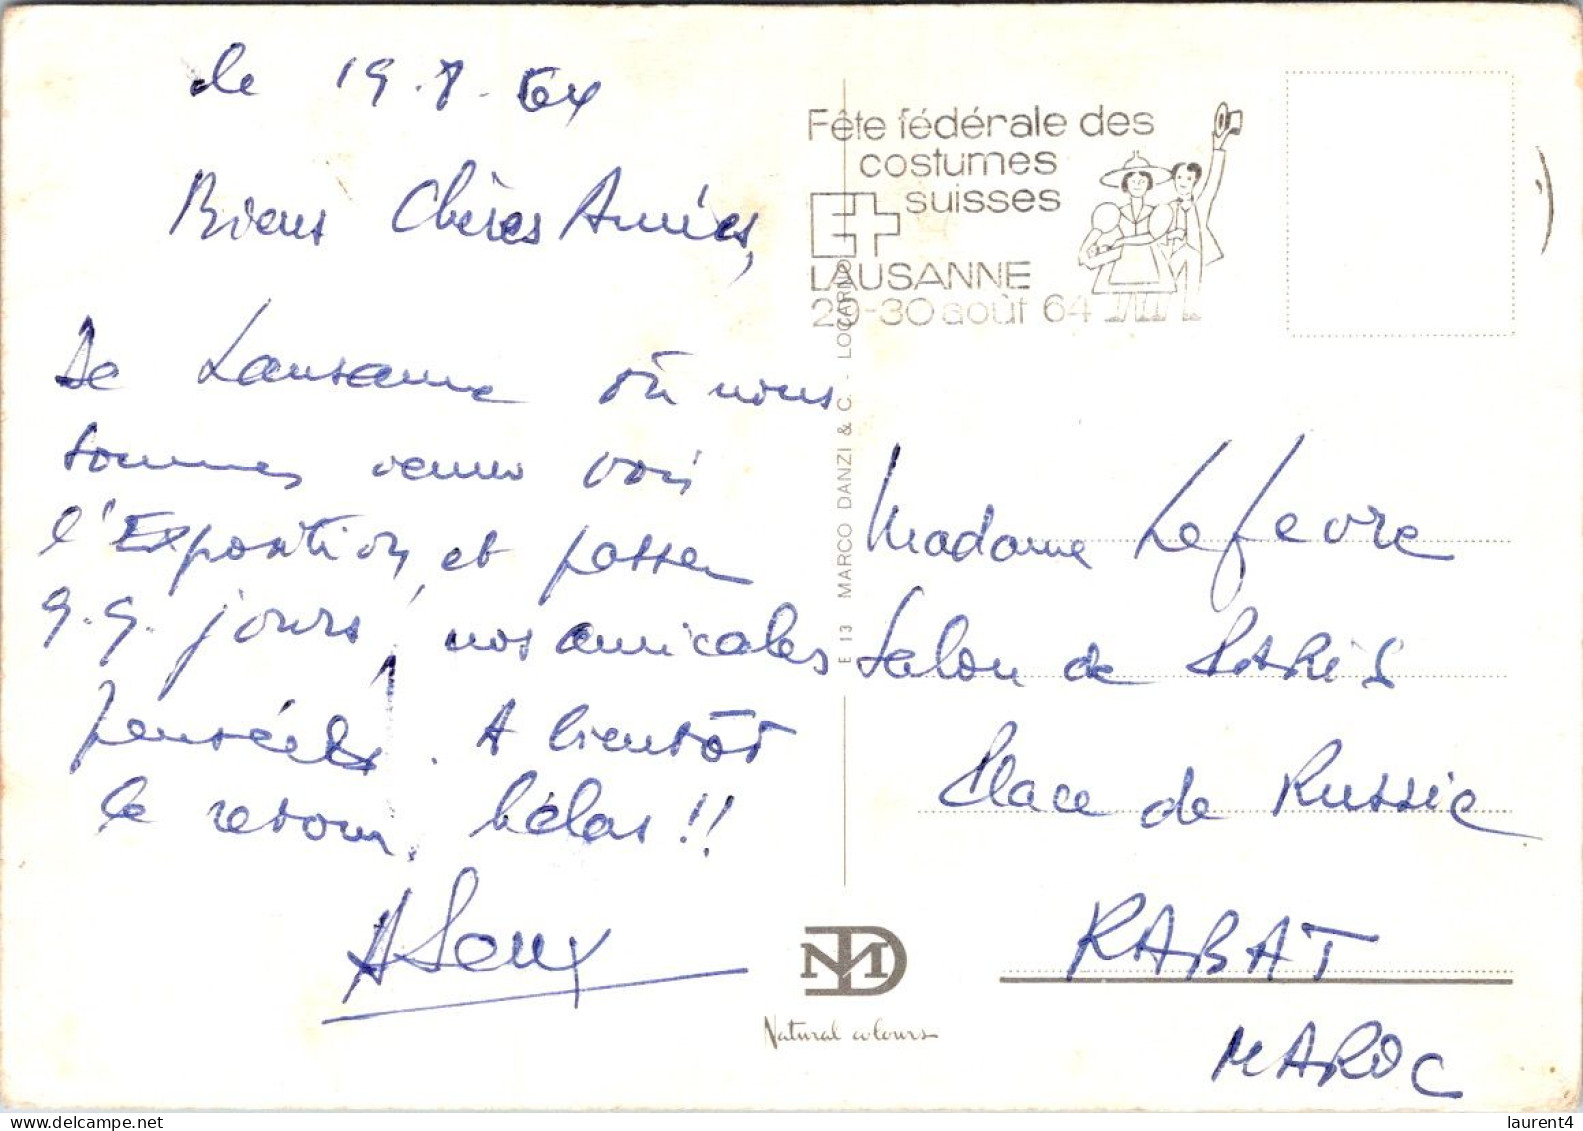 le 19.8.64
Biens Chères Amies,
De Lausanne où nous
sommes venus voir
l'Exposition, et passer
q.q. jours, nos amicales
pensées. A bientôt
le retour, hélas !!
Fête fédérale des
costumes
suisses
LAUSANNE
29-30 août 64
E 13 MARCO DANZI & C. - LOCARNO
Madame Lefevre
Salon de PARIS
Place de Russie
RABAT
MAROC
NATURAL colours
laurent4